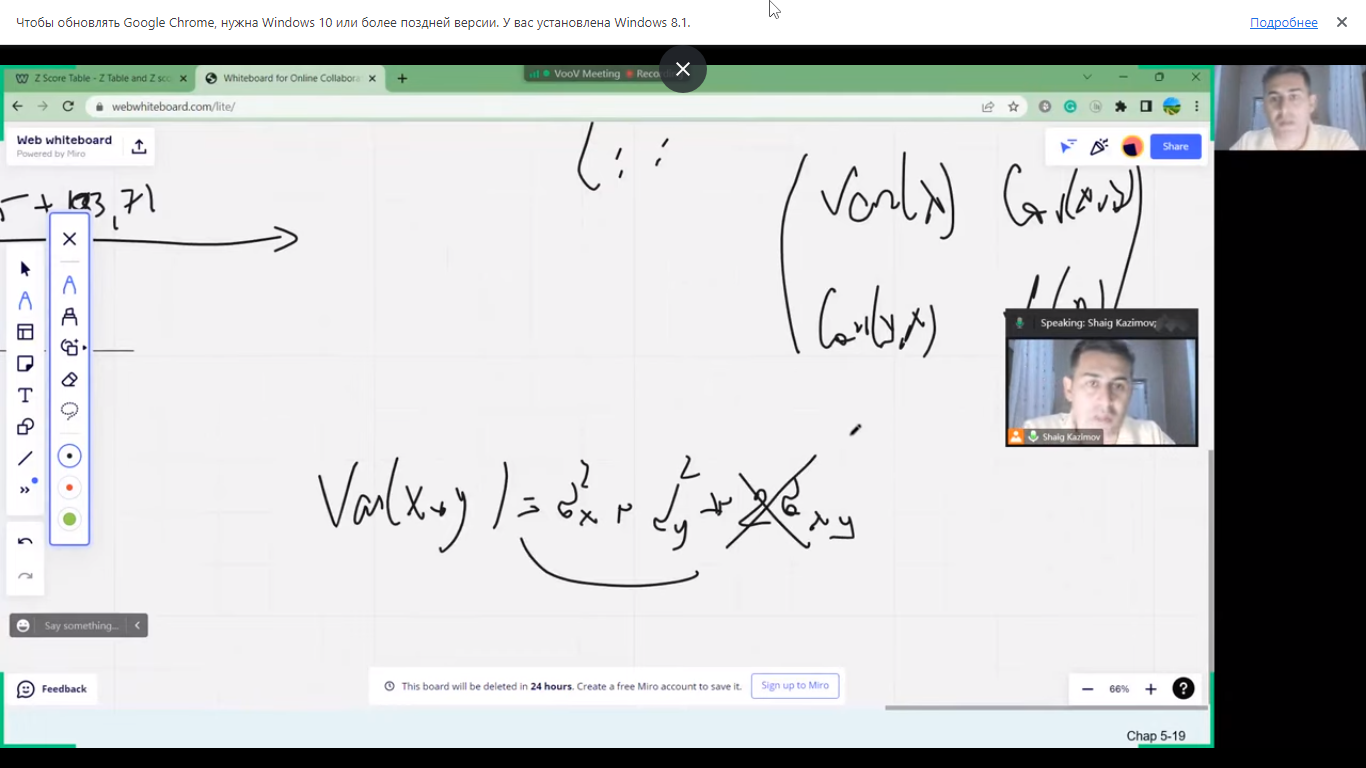 Чтобы обновлять Google Chrome, нужна Windows 10 или более поздней версии. У вас установлена Windows 8.1.
Подробнее
Z Score Table - Z Table and Z sco
Whiteboard for Online Collabora
VooV Meeting
webwhiteboard.com/lite/
Web whiteboard
Powered by Miro
Share
+ 103,71
Var(x) Cov(x,y)
Cov(y,x)
Speaking: Shaig Kazimov;
Shaig Kazimov
Var(x+y) = σ²x + σ²y + 2σxy
Say something...
Feedback
This board will be deleted in 24 hours. Create a free Miro account to save it.
Sign up to Miro
66%
Chap 5-19